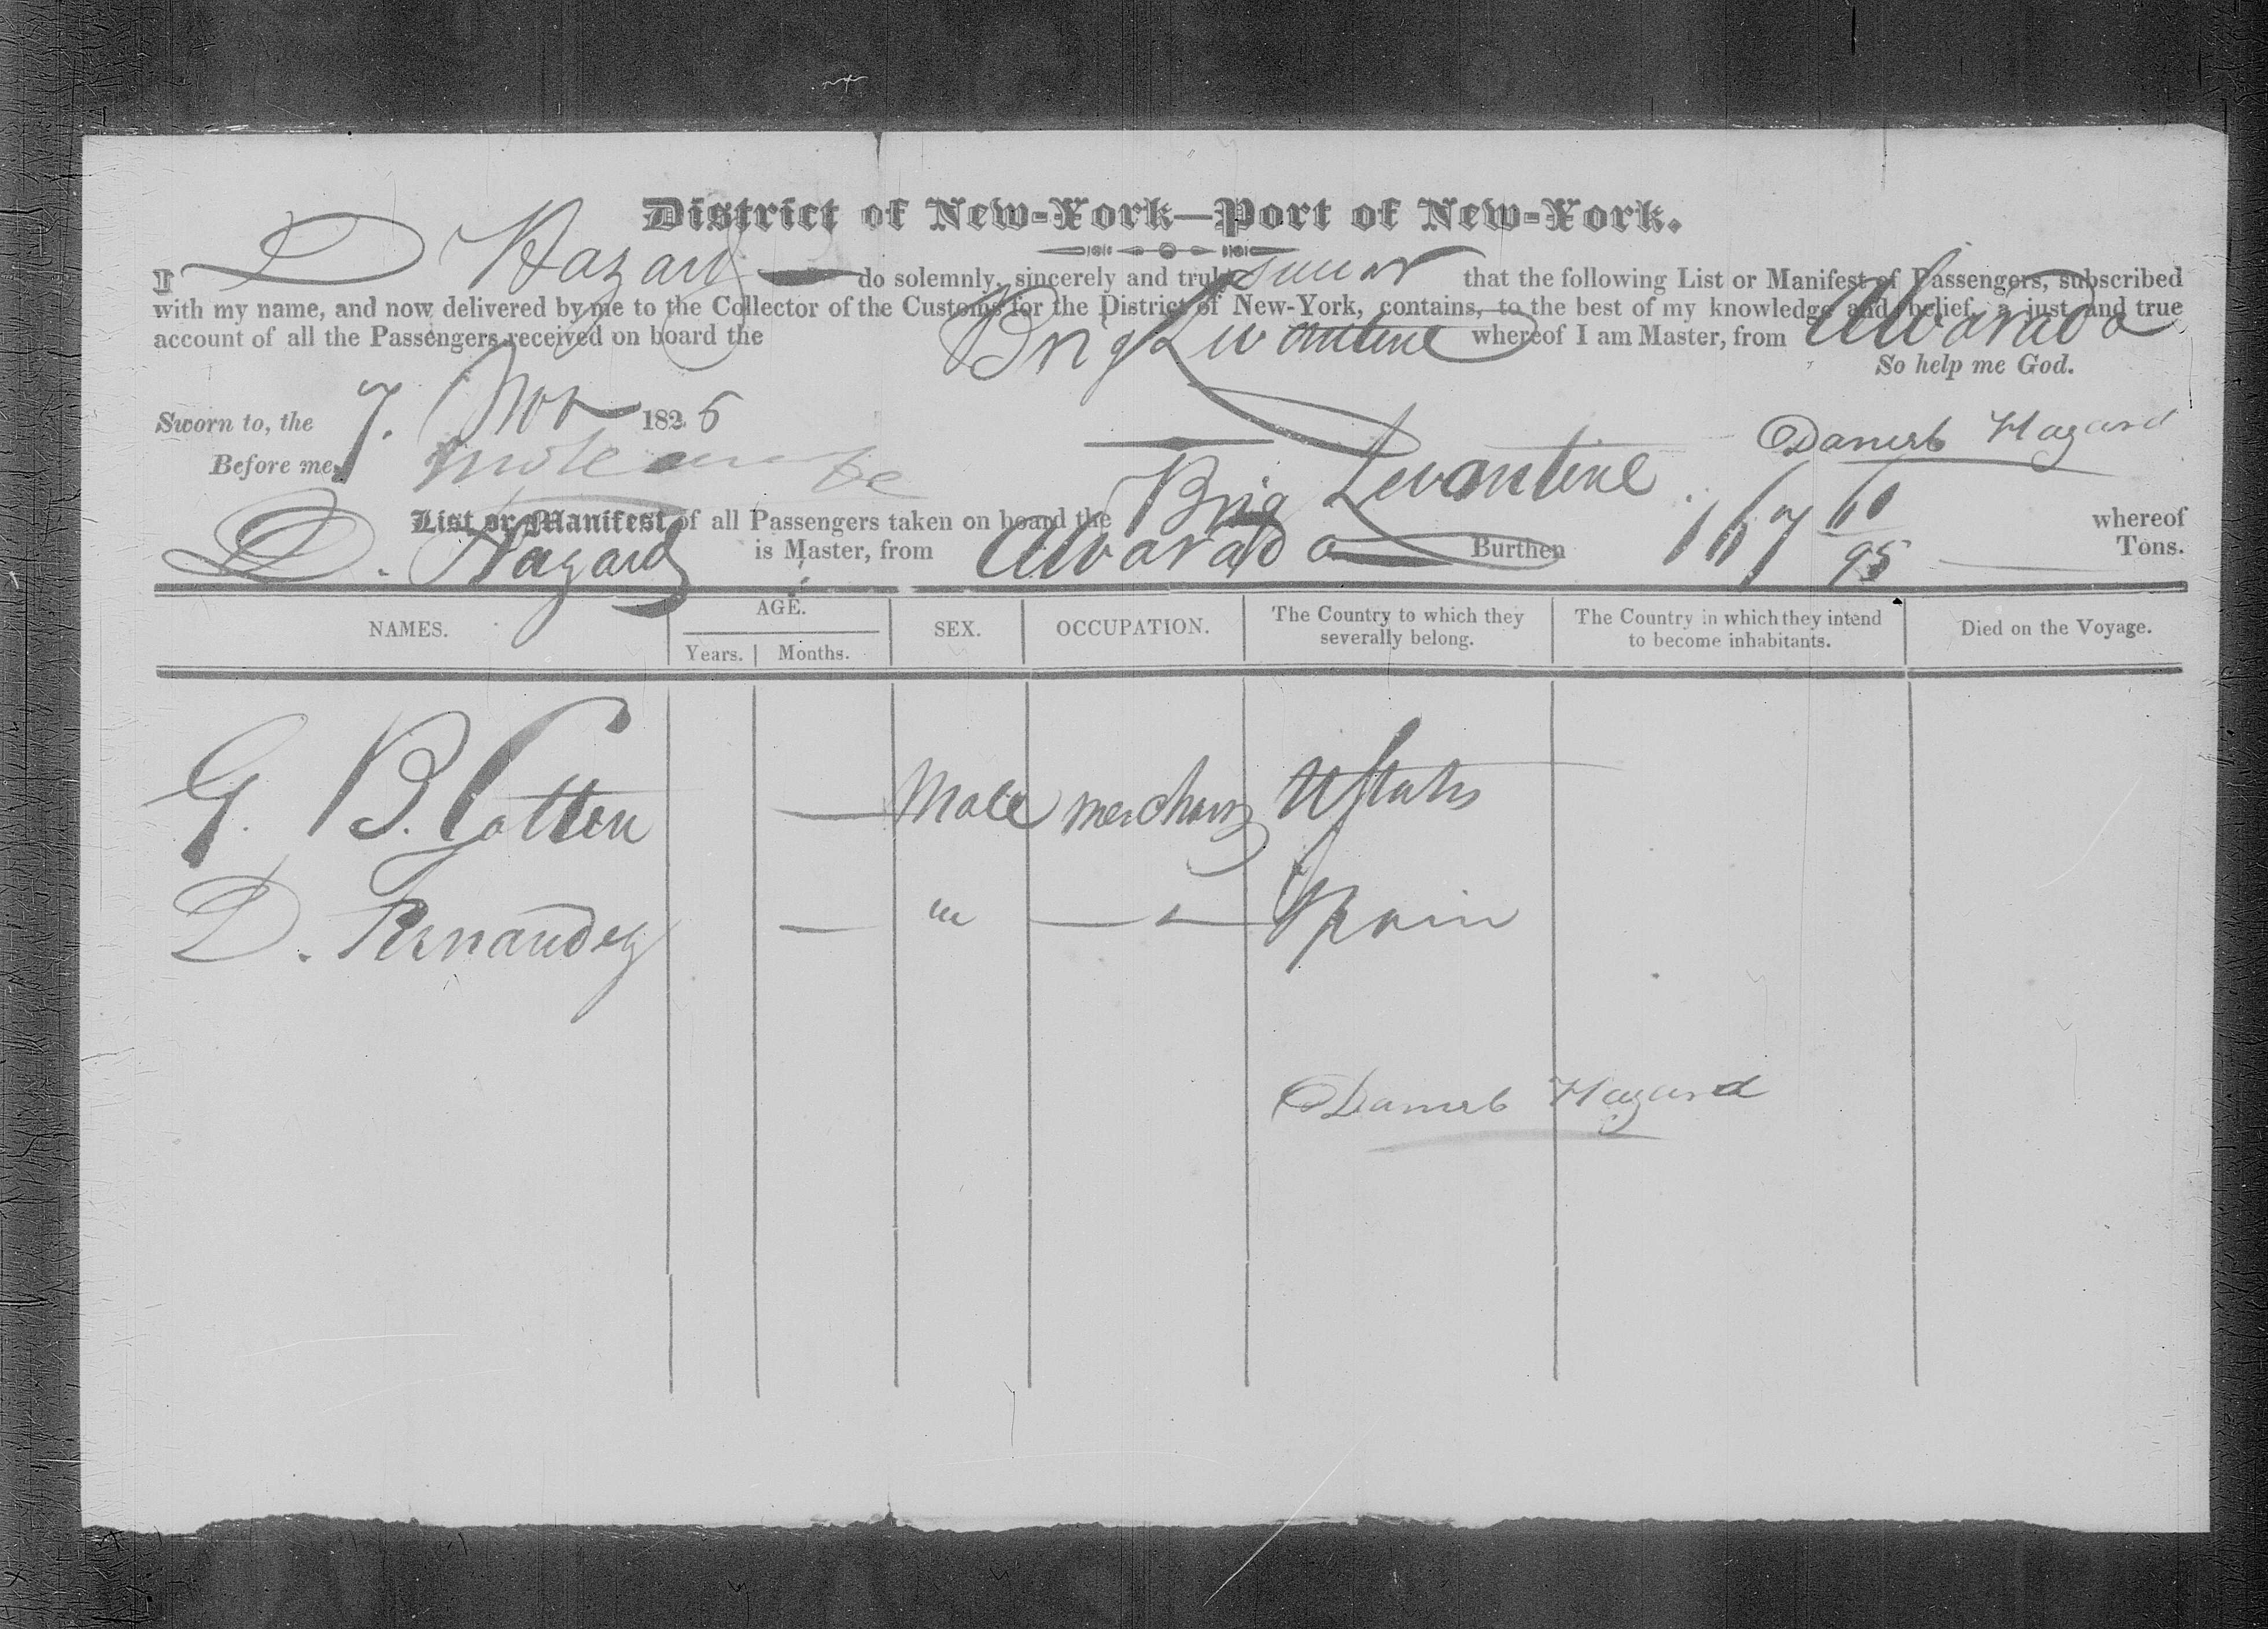 District of New-York—Port of New-York.
I D Hazard do solemnly, sincerely and truly swear that the following List or Manifest of Passengers, subscribed
with my name, and now delivered by me to the Collector of the Customs for the District of New-York, contains, to the best of my knowledge and belief, a just and true
account of all the Passengers received on board the Brig Levantine whereof I am Master, from Alvarado
So help me God.
Sworn to, the 7. Nov 1826
Daniel Hazard
Before me,
List or Manifest of all Passengers taken on board the Brig Levantine whereof
D. Hazard is Master, from Alvarado Burthen 167 60/95 Tons.
NAMES. AGE. SEX. OCCUPATION. The Country to which they severally belong. The Country in which they intend to become inhabitants. Died on the Voyage.
Years. Months.
G. B. Cotten — Male merchant UStates
D. Fernandez — " — " — Spain
Daniel Hazard